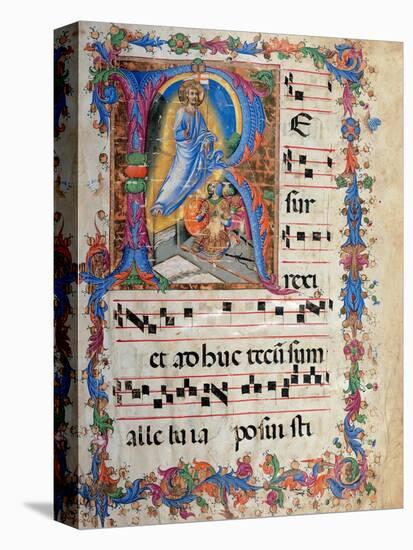 R E
sur
rexi
et adhuc tecū sum
alleluia posuisti